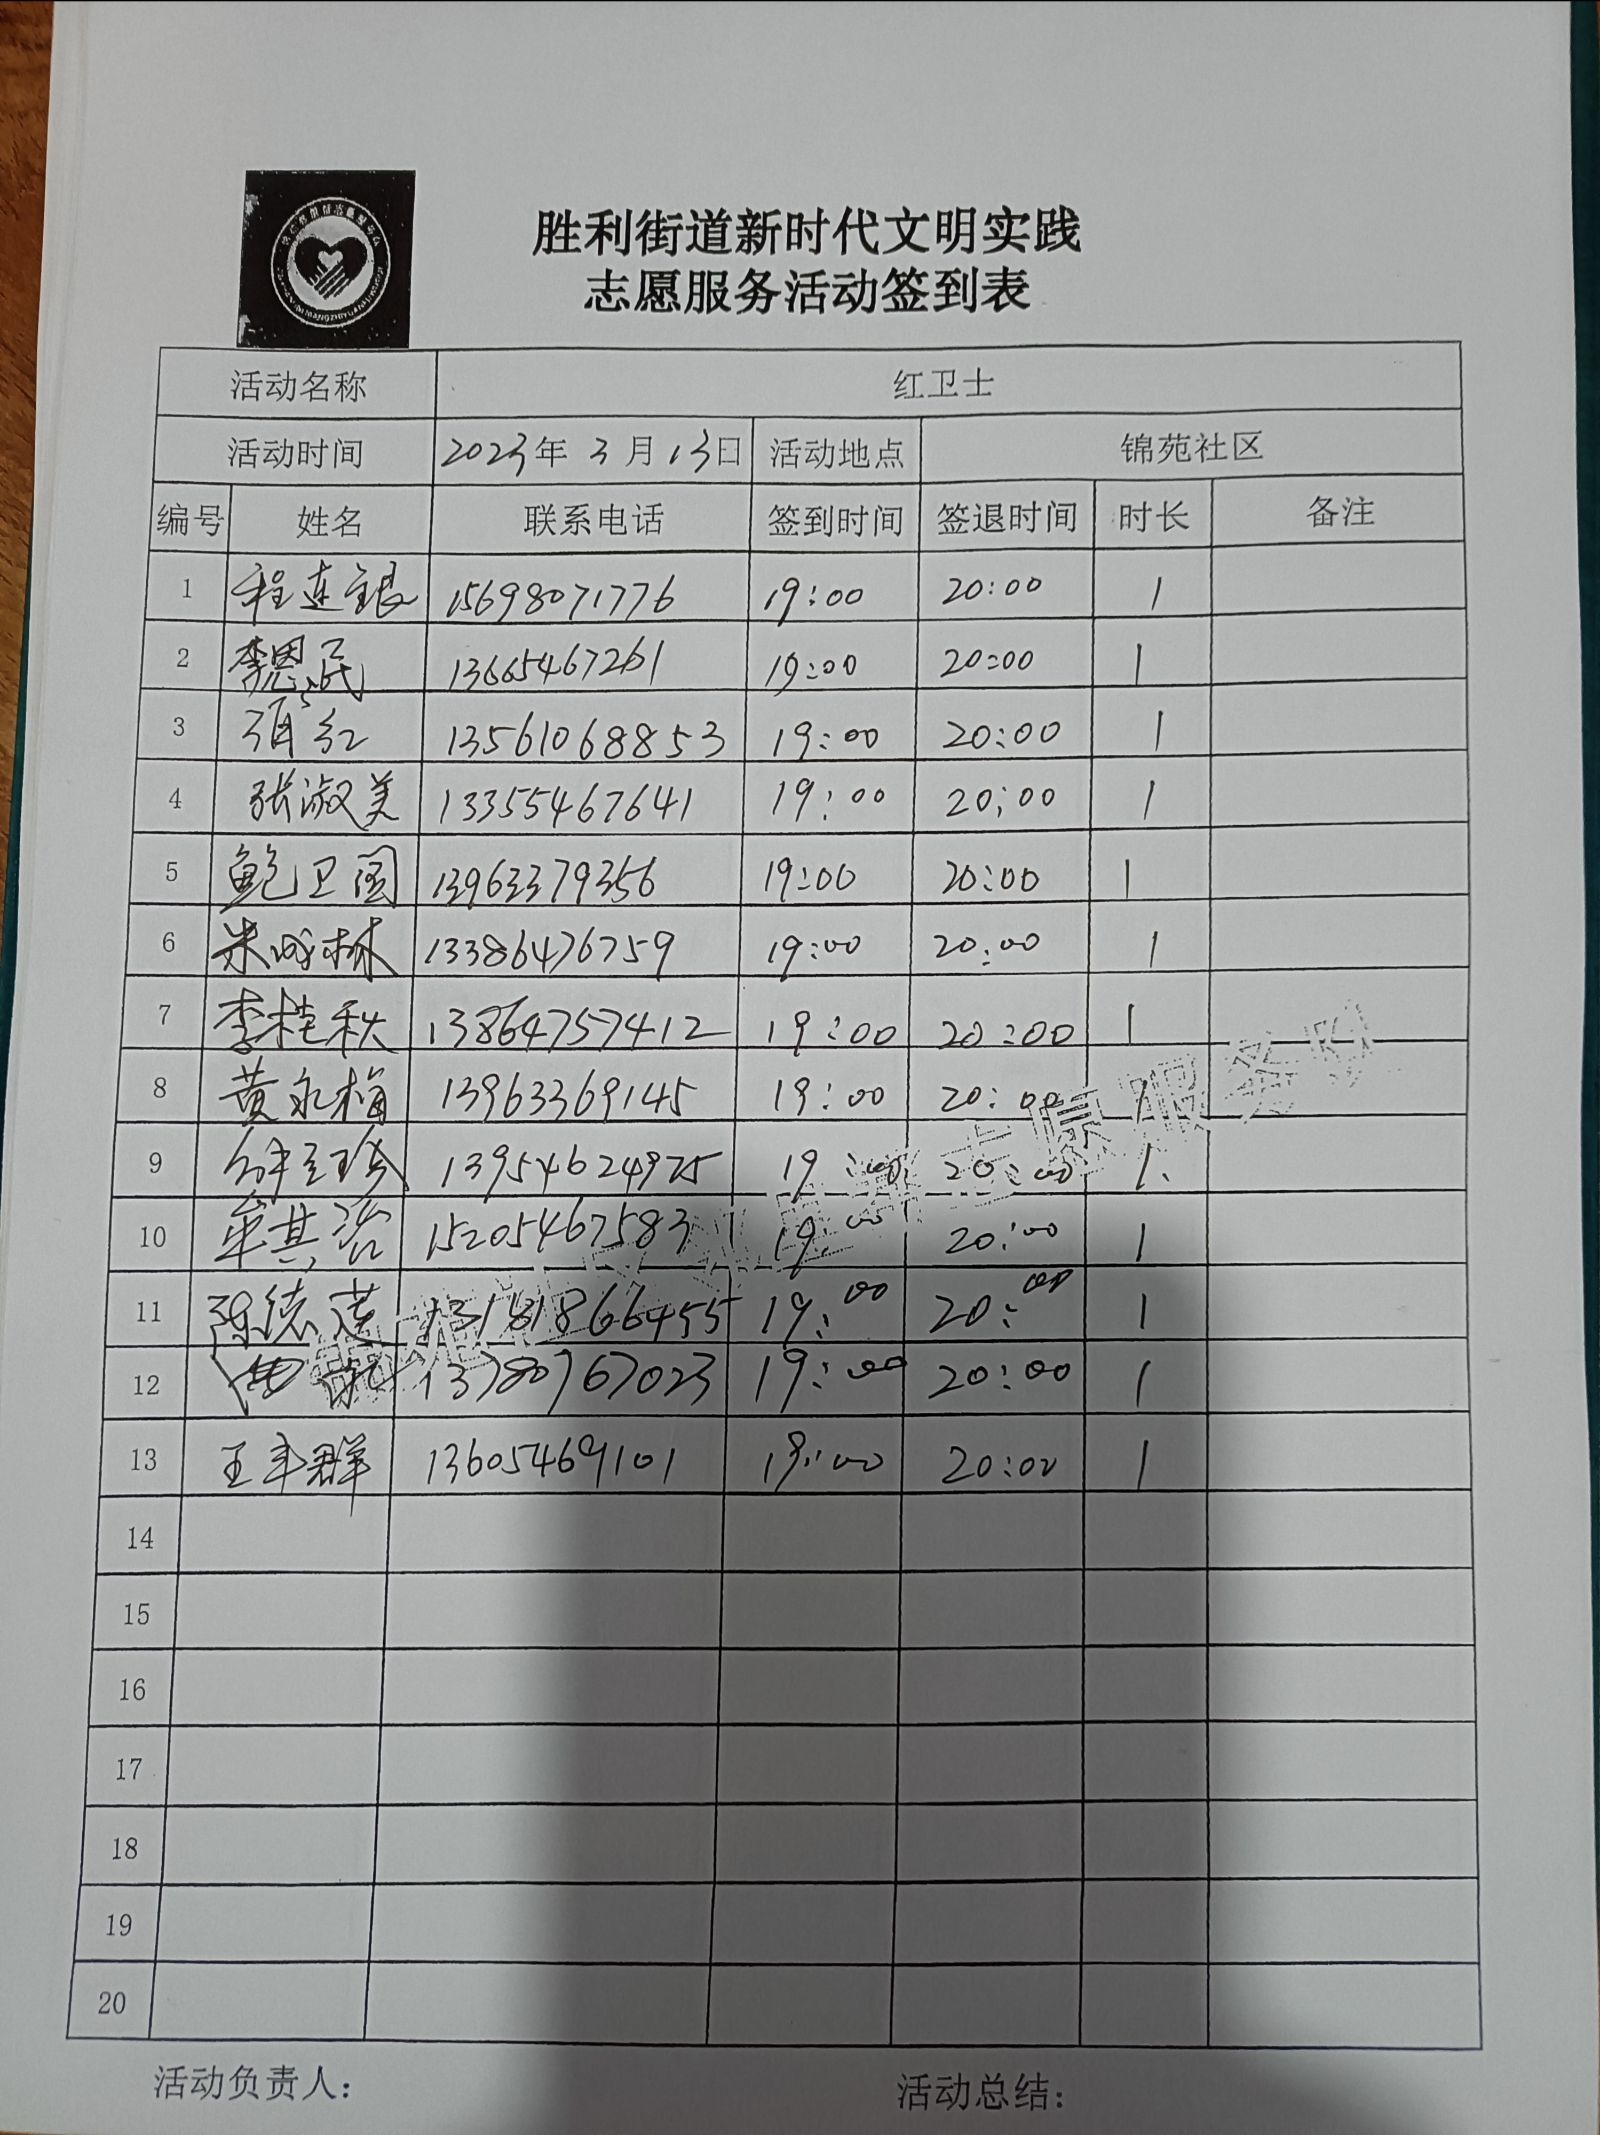 胜利街道新时代文明实践
志愿服务活动签到表
活动名称 红卫士
活动时间 2023年3月13日 活动地点 锦苑社区
编号 姓名 联系电话 签到时间 签退时间 时长 备注
1 程连银 15698071776 19:00 20:00 1
2 李恩民 13665467261 19:00 20:00 1
3 项红 13561068853 19:00 20:00 1
4 张淑美 13355467641 19:00 20:00 1
5 鲍卫国 13963379356 19:00 20:00 1
6 林 13386476759 19:00 20:00 1
7 李桂秋 13864757412 19:00 20:00 1
8 黄永梅 13963369145 19:00 20:00 1
9 13954624975 19:00 20:00 1
10 牟其浴 15205467583 19:00 20:00 1
11 陈德莲 13181866455 19:00 20:00 1
12 13780767023 19:00 20:00 1
13 王丰群 13605469101 19:00 20:00 1
14
15
16
17
18
19
20
志愿服务队
活动负责人: 活动总结: